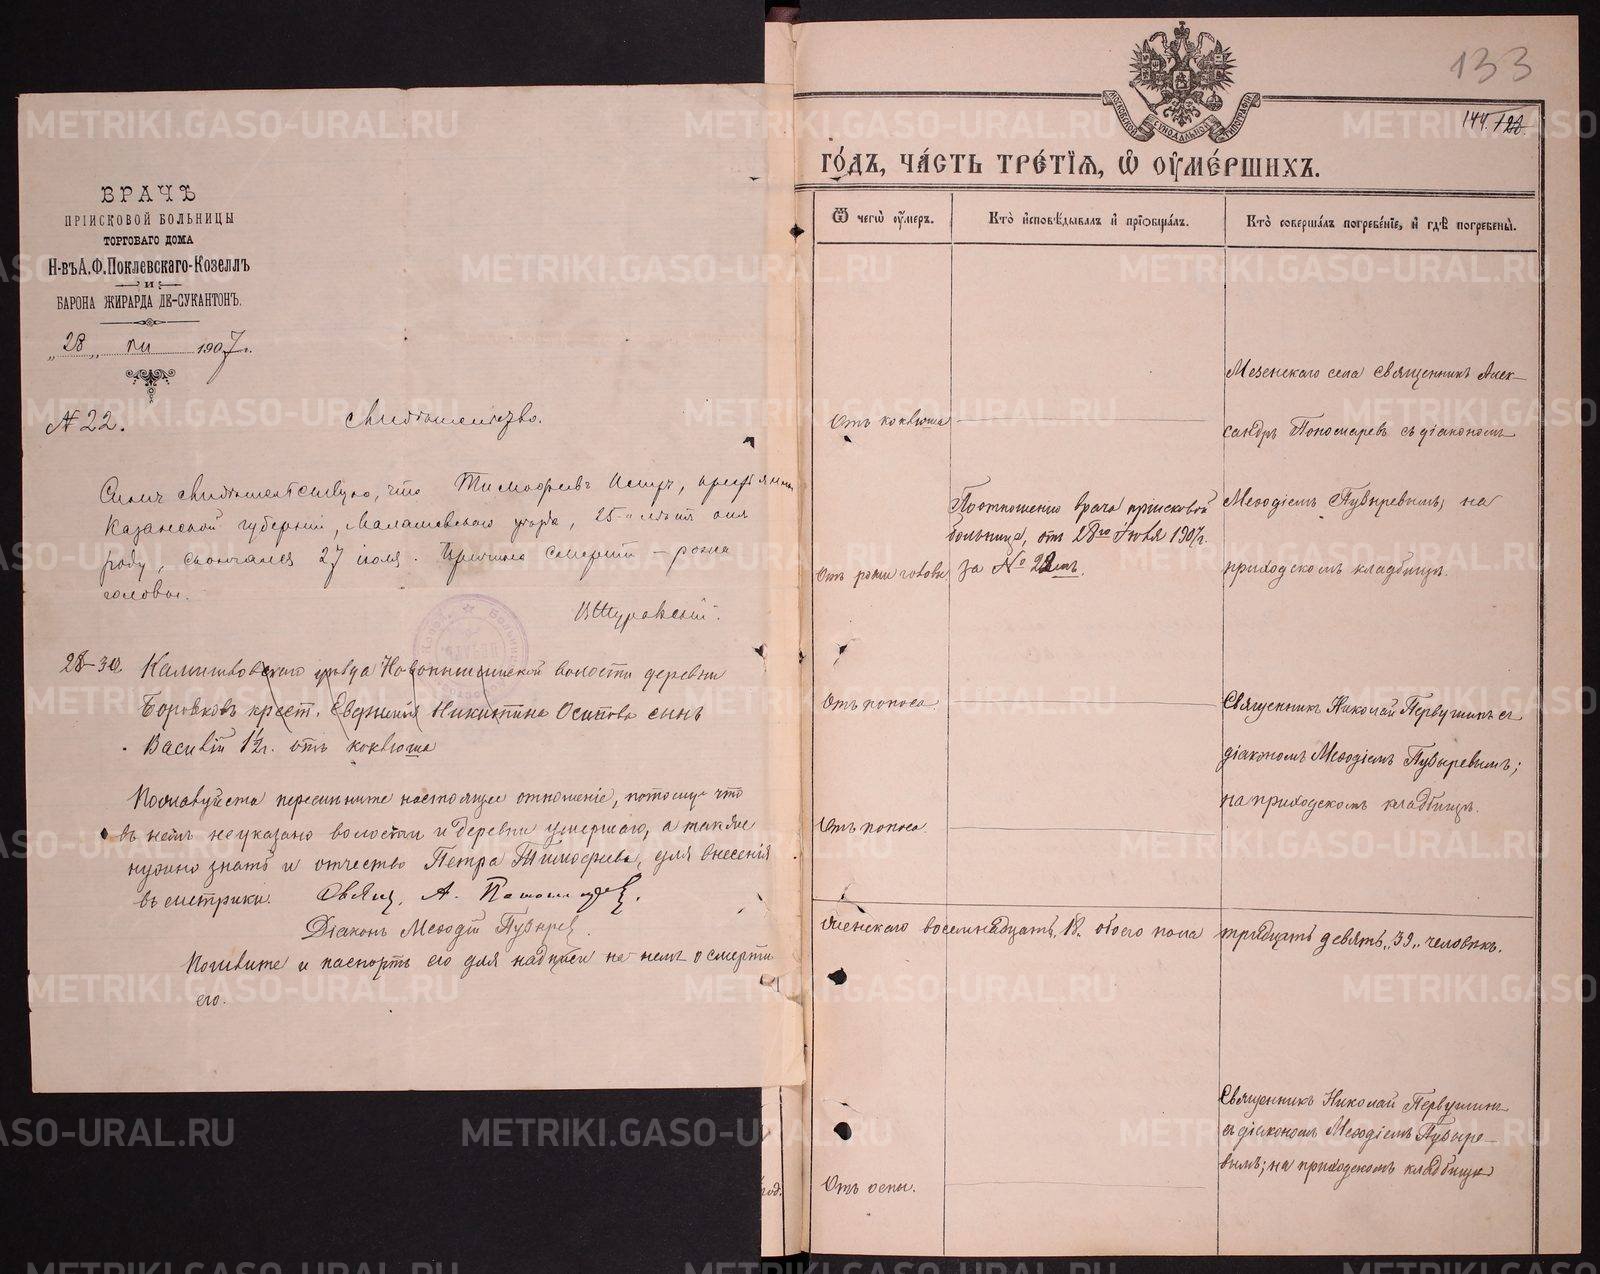 ВРАЧЪ
ПРІИСКОВОЙ БОЛЬНИЦЫ
ТОРГОВАГО ДОМА
Н-въ А.Ф. Поклевскаго-Козеллъ
И
БАРОНА ЖИРАРДА ДЕ-СУКАНТОНЪ.
„28„ VII 1907г.
№ 22.
Свидѣтельство.
Симъ свидѣтельствую, что Тимофеевъ Петръ,
Казанской губерніи, уѣзда, 25 лѣтъ
роду, скончался 27 июля. Причина смерти — рожа
головы.
28–30. Камышловскаго уѣзда Новопышминской волости деревни
Боровковъ крест. Евгенія Никитина Осипова сынъ
Василій 1½г. отъ коклюша
Пожалуйста перепишите настоящее отношеніе, потому что
въ немъ не указано волости и деревни умершаго, а также
нужно знать и отчество Петра Тимофеева, для внесенія
въ метрики. Свящ. А. Пономарев.
Діаконъ Меѳодій Пузырев.
Пошлите и паспортъ его для надписи на немъ о смерти
его.
133
144. 122.
МОСКОВСКОЙ СУНОДАЛЬНОЙ ТИПОГРАФІИ
ГО́ДЪ, ЧА́СТЬ ТРЕ́ТІѦ, Ѡ ОУМЕ́РШИХЪ.
Ѿ чегѡ̀ оу́меръ.
Кто̀ и҆сповѣ́дывалъ и҆ прїѡбща́лъ.
Кто̀ соверша́лъ погребе́нїе, и҆ гдѣ̀ погребены̀.
Отъ коклюша
Мезенскаго села священникъ Алек-
сандръ Пономаревъ съ діакономъ
Меѳодіемъ Пузыревымъ, на
приходскомъ кладбищѣ.
Отъ рожи головы
По отношенію врача пріисковой
больницы, отъ 28го Іюля 1907г.
за № 22мъ.
Отъ поноса.
Священникъ Николай Первушинъ съ
діакономъ Меѳодіемъ Пузыревымъ;
на приходскомъ кладбищѣ.
Отъ поноса.
женскаго восемнадцать „18„ обоего пола тридцать девять „39„ человѣкъ.
Отъ оспы.
Священникъ Николай Первушинъ
съ діакономъ Меѳодіемъ Пузыре-
вымъ; на приходскомъ кладбищѣ
METRIKI.GASO-URAL.RU